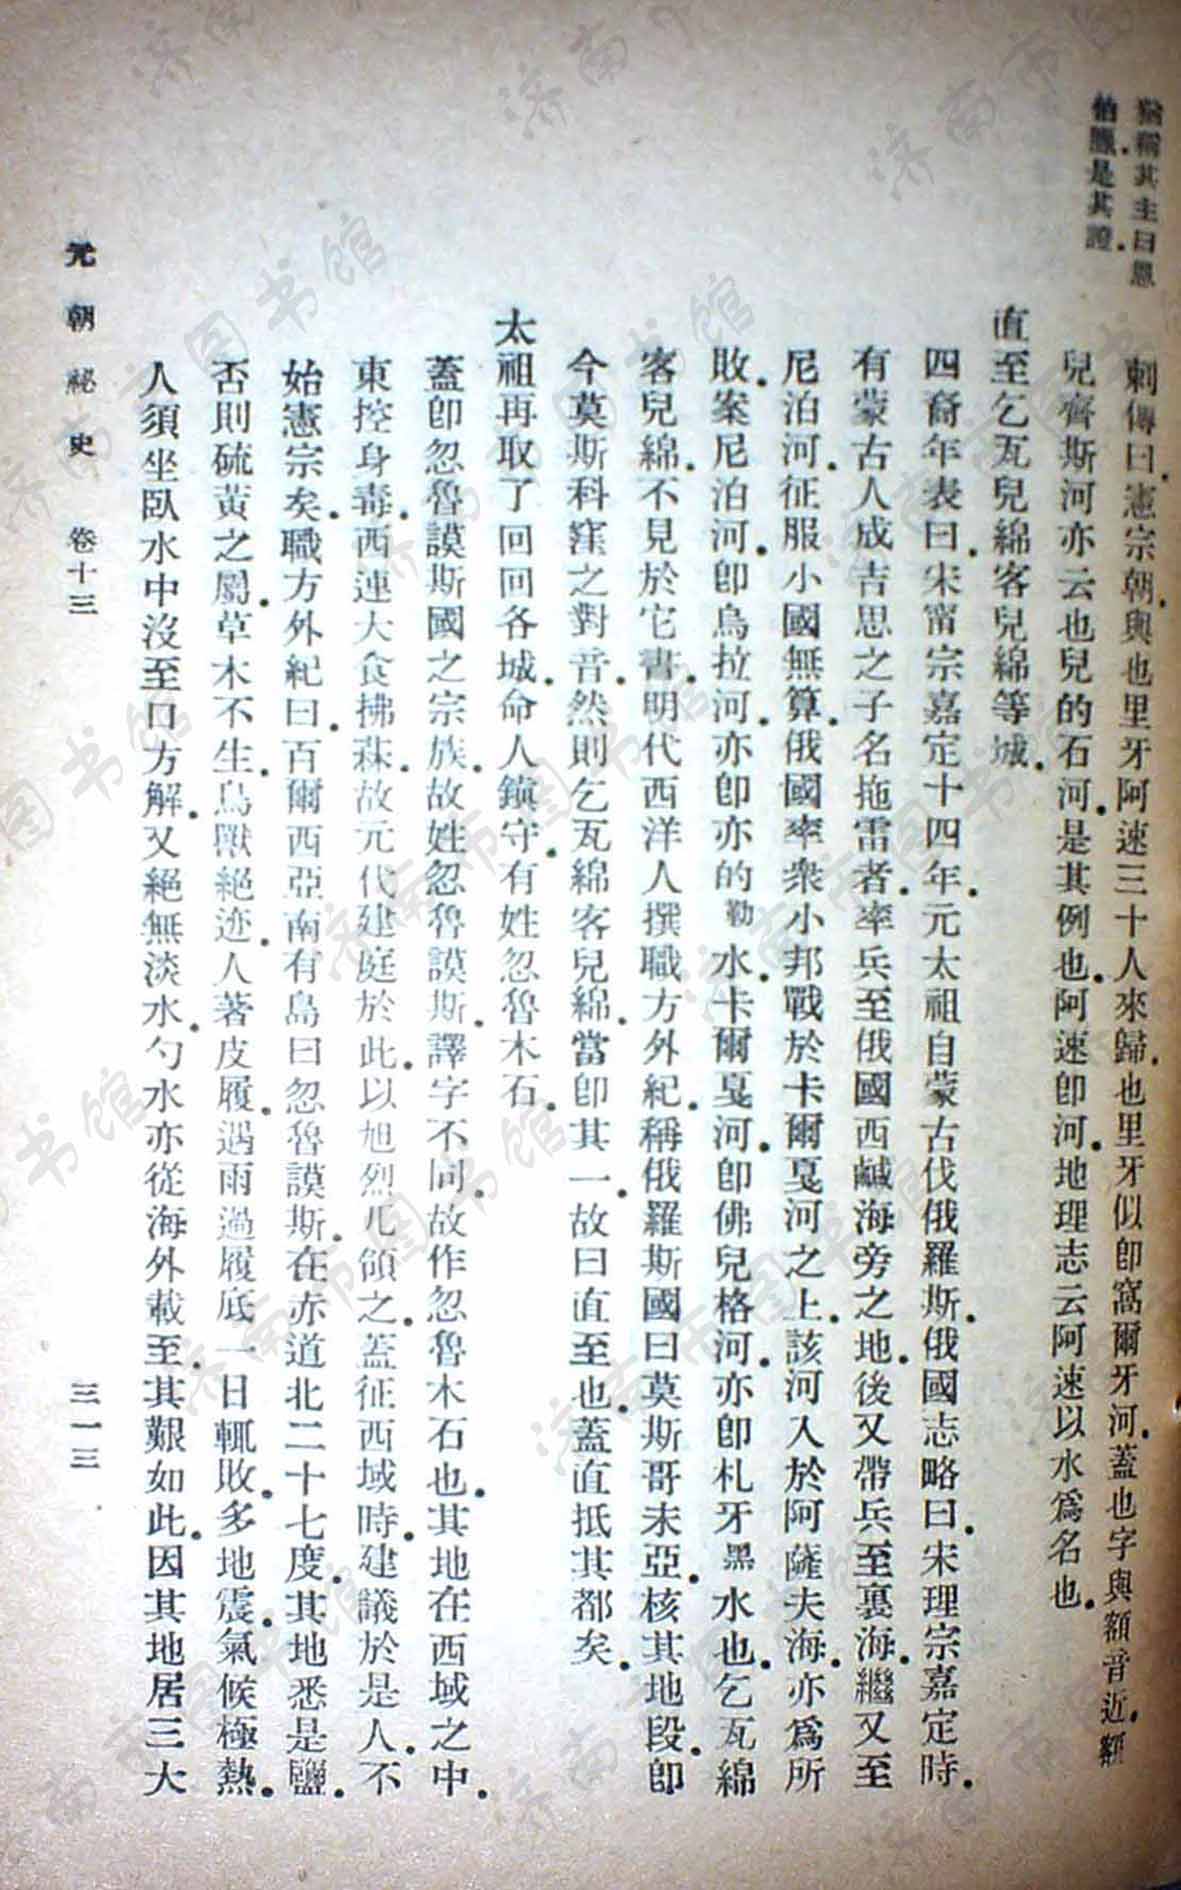 猶稱其主曰恩
伯縣是其證
刺傳曰憲宗朝與也里牙阿速三十人來歸也里牙似卽窩爾牙河蓋也字與額音近額
兒齊斯河亦云也兒的石河是其例也阿速卽河地理志云阿速以水爲名也
直至乞瓦兒綿客兒綿等城
四裔年表曰宋甯宗嘉定十四年元太祖自蒙古伐俄羅斯俄國志略曰宋理宗嘉定時
有蒙古人成吉思之子名拖雷者率兵至俄國西鹹海旁之地後又帶兵至裏海繼又至
尼泊河征服小國無算俄國率衆小邦戰於卡爾戛河之上該河入於阿薩夫海亦爲所
敗案尼泊河卽烏拉河亦卽亦的勒水卡爾戛河卽佛兒格河亦卽札牙黑水也乞瓦綿
客兒綿不見於它書明代西洋人撰職方外紀稱俄羅斯國曰莫斯哥未亞核其地段卽
今莫斯科窪之對音然則乞瓦綿客兒綿當卽其一故曰直至也蓋直抵其都矣
太祖再取了回回各城命人鎮守有姓忽魯木石
蓋卽忽魯謨斯國之宗族故姓忽魯謨斯譯字不同故作忽魯木石也其地在西域之中
東控身毒西連大食拂菻故元代建庭於此以旭烈兀領之蓋征西域時建議於是人不
始憲宗矣職方外紀曰百爾西亞南有島曰忽魯謨斯在赤道北二十七度其地悉是鹽
否則硫黃之屬草木不生鳥獸絕迹人著皮履遇雨過履底一日輒敗多地震氣候極熱
人須坐臥水中沒至口方解又絕無淡水勺水亦從海外載至其艱如此因其地居三大
元朝祕史 卷十三 三一三